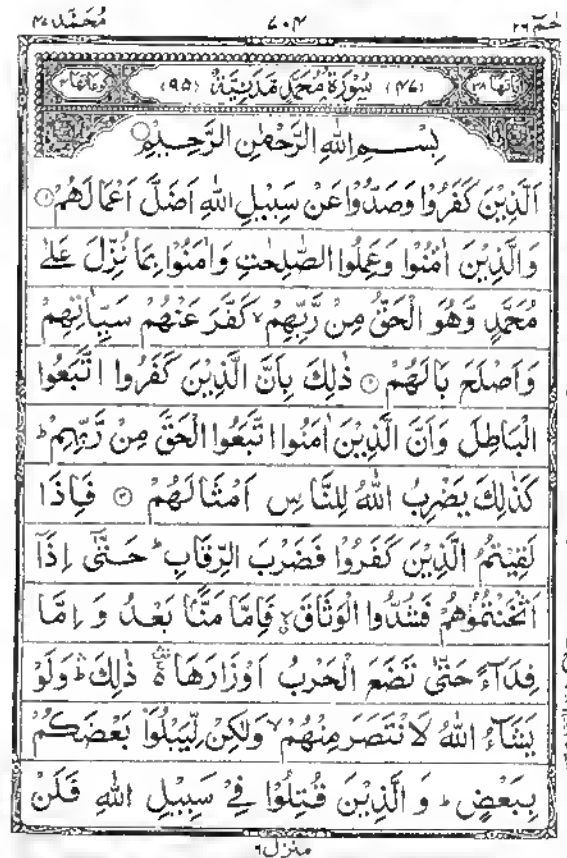 حٰمٓ ٢٦ ٧٠٤ مُحَمَّد ٤٧
اٰیاتها ٣٨ (٤٧) سُوْرَةُ مُحَمَّدٍ مَّدَنِيَّةٌ (٩٥) رکوعاتها ٤
بِسْمِ اللهِ الرَّحْمٰنِ الرَّحِيْمِ
اَلَّذِيْنَ كَفَرُوْا وَصَدُّوْا عَنْ سَبِيْلِ اللهِ اَضَلَّ اَعْمَالَهُمْ ١
وَالَّذِيْنَ اٰمَنُوْا وَعَمِلُوا الصّٰلِحٰتِ وَاٰمَنُوْا بِمَا نُزِّلَ عَلٰى
مُحَمَّدٍ وَّهُوَ الْحَقُّ مِنْ رَّبِّهِمْ ۙ كَفَّرَ عَنْهُمْ سَيِّاٰتِهِمْ
وَاَصْلَحَ بَالَهُمْ ٢ ذٰلِكَ بِاَنَّ الَّذِيْنَ كَفَرُوا اتَّبَعُوا
الْبَاطِلَ وَاَنَّ الَّذِيْنَ اٰمَنُوا اتَّبَعُوا الْحَقَّ مِنْ رَّبِّهِمْ ؕ
كَذٰلِكَ يَضْرِبُ اللهُ لِلنَّاسِ اَمْثَالَهُمْ ٣ فَاِذَا
لَقِيْتُمُ الَّذِيْنَ كَفَرُوْا فَضَرْبَ الرِّقَابِ ؕ حَتّٰٓى اِذَآ
اَثْخَنْتُمُوْهُمْ فَشُدُّوا الْوَثَاقَ ۙ فَاِمَّا مَنًّۢا بَعْدُ وَاِمَّا
فِدَآءً حَتّٰى تَضَعَ الْحَرْبُ اَوْزَارَهَا ۛ ذٰلِكَ ۛ وَلَوْ
يَشَآءُ اللهُ لَانْتَصَرَ مِنْهُمْ ۙ وَلٰكِنْ لِّيَبْلُوَا۟ بَعْضَكُمْ
بِبَعْضٍ ؕ وَالَّذِيْنَ قُتِلُوْا فِيْ سَبِيْلِ اللهِ فَلَنْ
منزل ٦